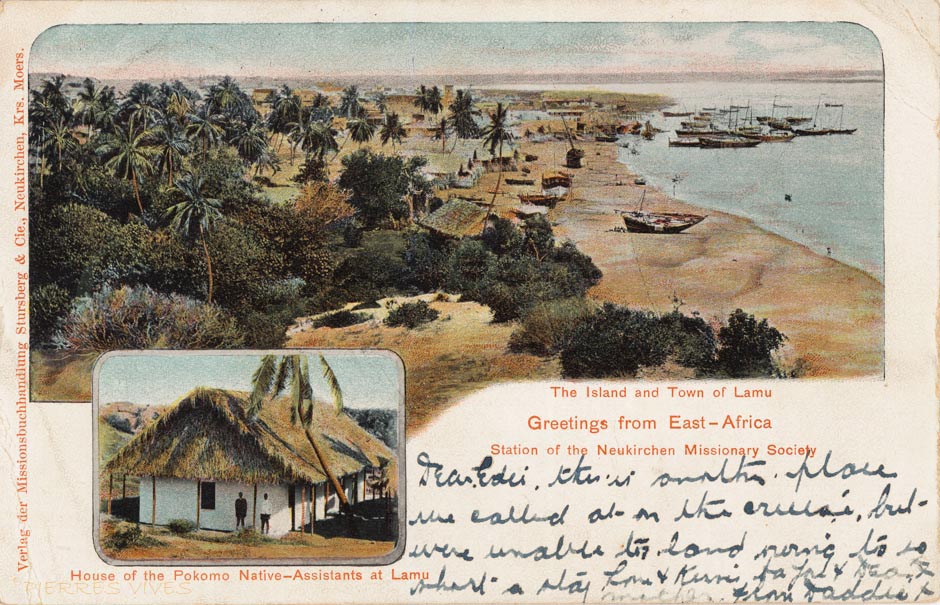 Verlag der Missionsbuchhandlung Stursberg & Cie., Neukirchen, Krs. Moers.
The Island and Town of Lamu
Greetings from East-Africa
Station of the Neukirchen Missionary Society
Dear, this is another place
we called at on the cruise, but
were unable to land owing to so
short a stay Love & Kisses, to you &
mother. from Daddie x
House of the Pokomo Native-Assistants at Lamu
PIERRES VIVES